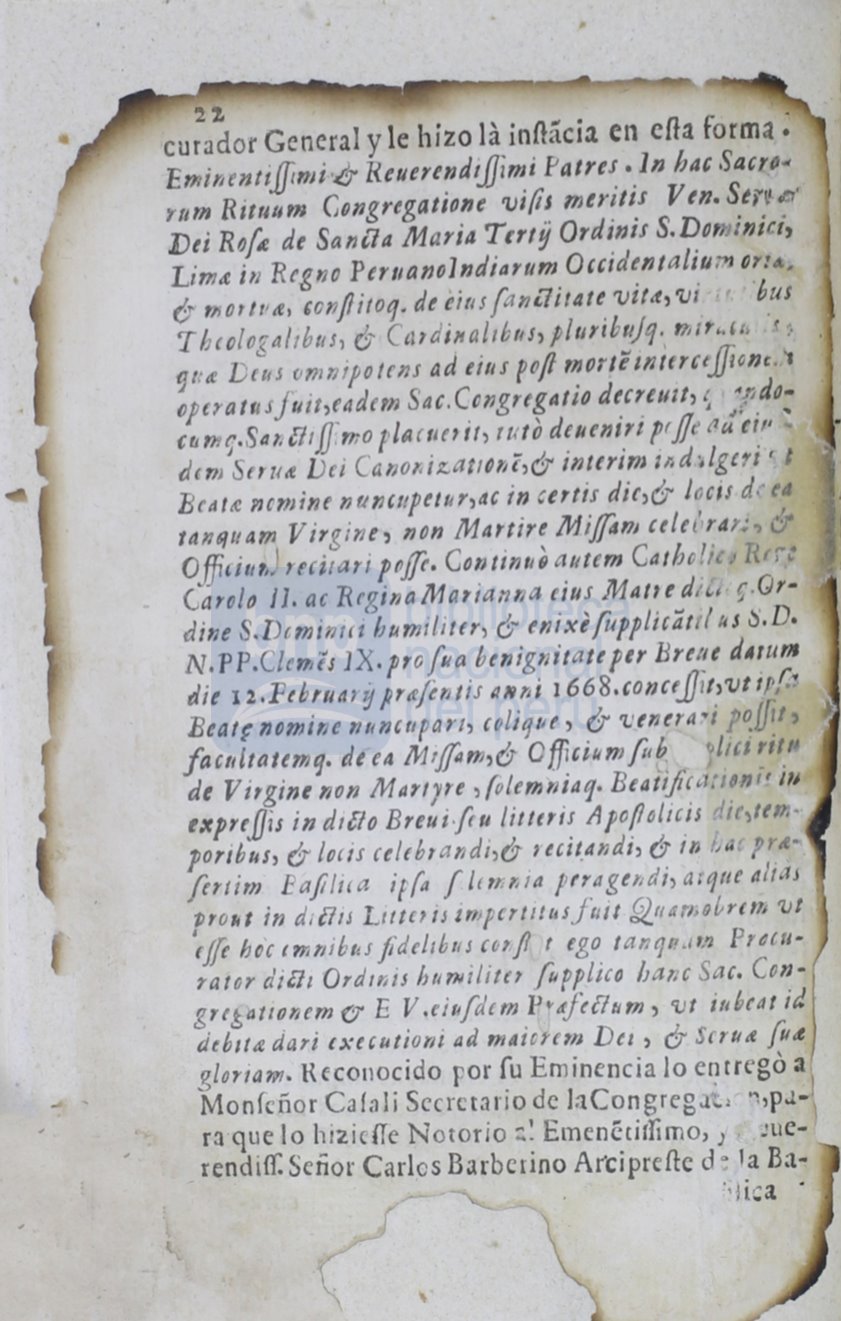 22
curador General y le hizo là inſtãcia en eſta forma .
Eminentiſſimi & Reuerendiſſimi Patres . In hac Sacro-
rum Rituum Congregatione viſis meritis Ven. Seruæ
Dei Roſæ de Sancta Maria Tertij Ordinis S. Dominici,
Limæ in Regno PeruanoIndiarum Occidentalium ortæ,
& mortuæ, conſtitoq. de eius ſanctitate vitæ, bus
Theologalibus, & Cardinalibus, pluribuſq.
quæ Deus omnipotens ad eius poſt mortẽ interceſſione
operatus fuit, eadem Sac. Congregatio decreuit, ndo-
cumq. Sanctiſſimo placuerit, tutò deueniri poſſe ad
dem Seruæ Dei Canonizationẽ, & interim
Beatæ nomine nuncupetur, ac in certis die, & locis de ea
tanquam Virgine, non Martire Miſſam celebrari, &
Officium recitari poſſe. Continuò autem Catholico Rege
Carolo II. ac Regina Marianna eius Matre q. Or-
dine S. Dominici humiliter, & enixè ſupplicãtibus S. D.
N. PP. Clemẽs IX. pro ſua benignitate per Breue datum
die 12. Februarij præſentis anni 1668. conceſſit, vt ipſa
Beatę nomine nuncupari, colique, & venerari poſſit,
facultatemq. de ea Miſſam, & Officium ſub plici ritu
de Virgine non Martyre , ſolemniaq. Beatificationis in
expreſſis in dicto Breui ſeu litteris Apoſtolicis die, tem-
poribus, & locis celebrandi, & recitandi, & in hac præ-
ſertim Baſilica ipſa ſolemnia peragendi, atque aliàs
prout in dictis Litteris impertitus fuit Quamobrem vt
eſſe hoc omnibus fidelibus conſt t ego tanquam Procu-
rator dicti Ordinis humiliter ſupplico hanc Sac. Con-
gregationem & E V . eiuſdem Præfectum , vt iubeat id
debitæ dari executioni ad maiorem Dei , & Seruæ ſuæ
gloriam. Reconocido por ſu Eminencia lo entregò a
Monſeñor Caſali Secretario de laCongregacion, pa-
ra que lo hizieſſe Notorio al Emenẽtiſſimo, y eue-
rendiſſ. Señor Carlos Barberino Arcipreſte de la Ba-
ſilica
biblioteca
nacional
del perú